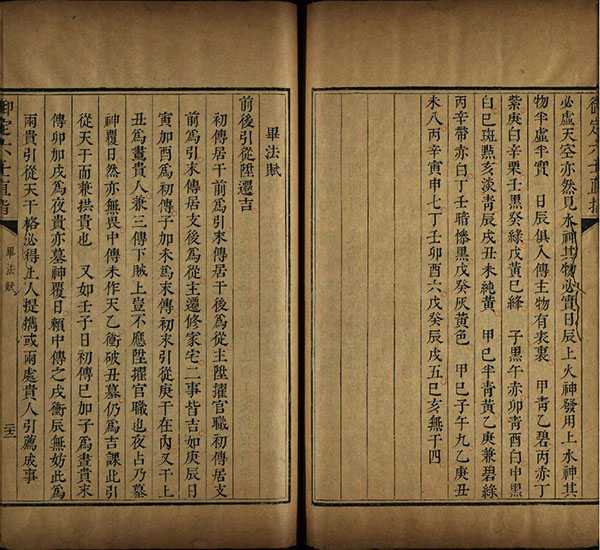 必虛天空亦然見水神其物必實日辰上火神發用上水神其
物半虛半實　日辰俱入傳主物有表裏　甲青乙碧丙赤丁
紫庚白辛栗壬黑癸綠戊黃己絳　子黑午赤卯青酉白申黑
白巳斑黙亥淡青辰戌丑未純黃　甲巳半青黃乙庚兼碧綠
丙辛帶赤白丁壬暗慘黑戊癸灰黃色　甲巳子午九乙庚丑
未八丙辛寅申七丁壬卯酉六戊癸辰戌五巳亥無干四
御定六壬直指
畢法賦
前後引從陞遷吉
初傳居干前為引末傳居干後為從主陞擢官職初傳居支
前為引末傳居支後為從主遷修家宅二事皆吉如庚辰日
寅加酉為初傳子加未為末傳初末引從庚干在內又干上
丑為晝貴人兼三傳下賊上豈不應陞擢官職也夜占乃墓
神覆日然亦無畏中傳未作天乙衝破丑墓仍為吉課此引
從天干而兼拱貴也　又如壬子日初傳巳加子為晝貴末
傳卯加戌為夜貴亦墓神覆日賴中傳之戌衝辰無妨此為
兩貴引從天干格必得上人提攜或兩處貴人引薦成事
御定六壬直指
畢法賦